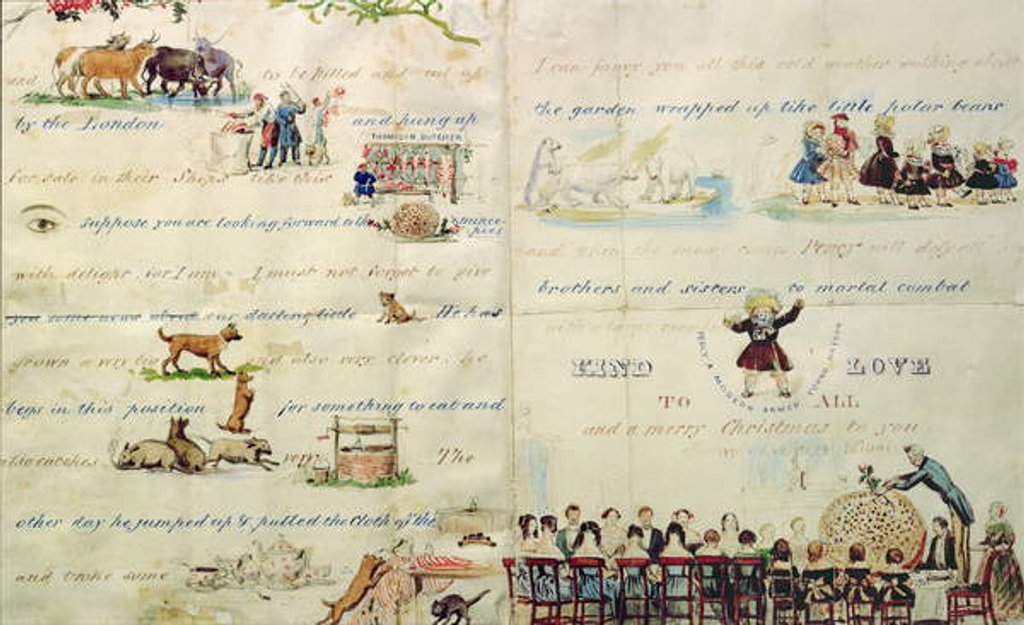 and to be killed and cut up
by the London and hung up
THOMPSON BUTCHER
for sale in their Shops like this
Suppose you are looking forward to the mince-pies
with delight, for I am - I must not forget to give
you some news about our darling little He has
grown a very big and also very clever, he
begs in this position for something to eat and
also catches very The
other day he jumped up & pulled the Cloth of the
and broke some
I can fancy you all this cold weather walking about
the garden wrapped up like little polar bears
and when the snow comes Percy will defy all
brothers and sisters to mortal combat
with a large
KIND LOVE
PERCY A MODERN
TO ALL
and a merry Christmas to you